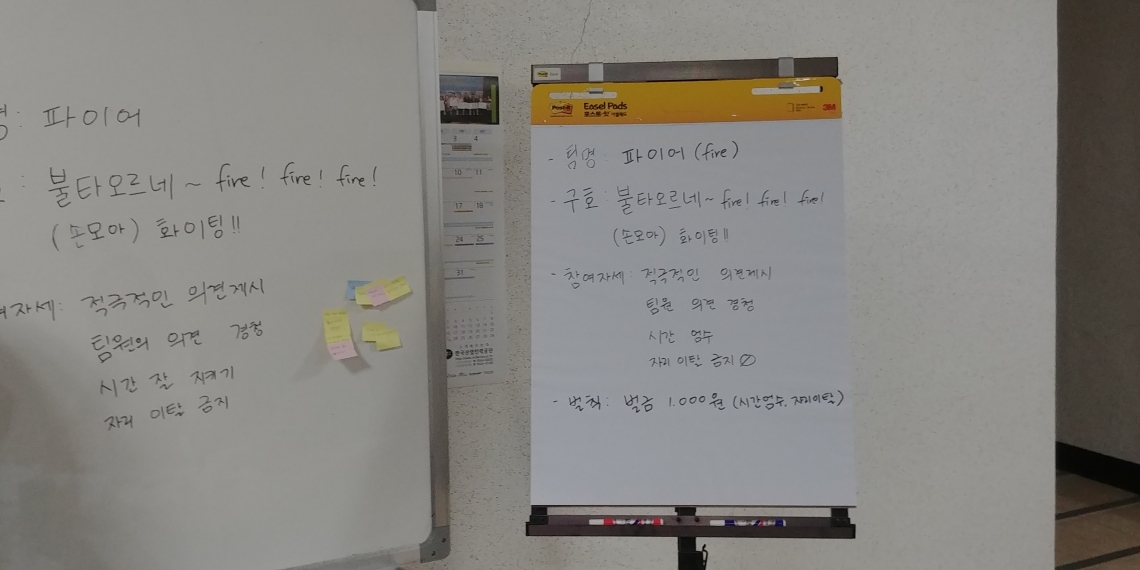 명: 파이어
: 불타오르네~ fire! fire! fire!
(손모아) 화이팅!!
여자세: 적극적인 의견제시
팀원의 의견 경청
시간 잘 지키기
자리 이탈 금지
3 4
10 11
17 18
24 25
31
Post-it
Easel Pads
포스트-잇
3M
- 팀명: 파이어 (fire)
- 구호: 불타오르네~ fire! fire! fire!
(손모아) 화이팅!!
- 참여자세: 적극적인 의견제시
팀원 의견 경청
시간 엄수
자리 이탈 금지
- 벌칙: 벌금 1.000원 (시간엄수, 자리이탈)